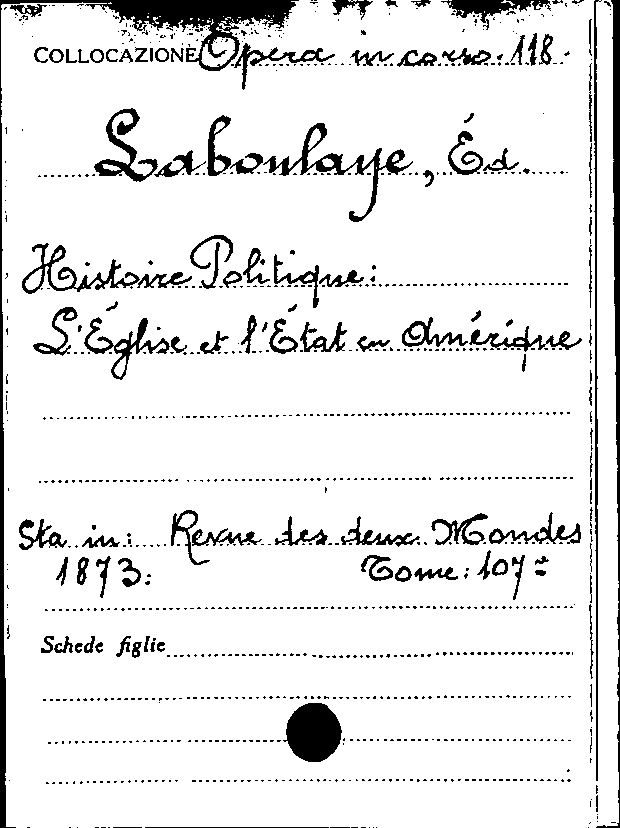 COLLOCAZIONE Opera in corso. 118.
Laboulaye, Éd.
Histoire Politique:
L'Église et l'État en Amérique
Sta in: Revue des deux Mondes
1873. Tome: 107=
Schede figlie